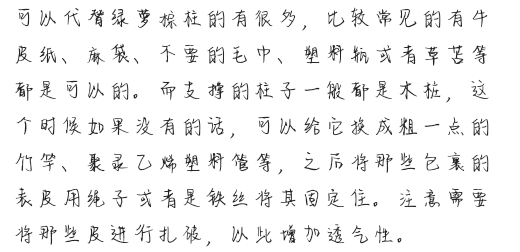 可以代替绿萝棕柱的有很多，比较常见的有牛
皮纸、麻袋、不要的毛巾、塑料瓶或者草苫等
都是可以的。而支撑的柱子一般都是木桩，这
个时候如果没有的话，可以给它换成粗一点的
竹竿、聚录乙烯塑料管等，之后将那些包裹的
表皮用绳子或者是铁丝将其固定住。注意需要
将那些皮进行扎破，以此增加透气性。